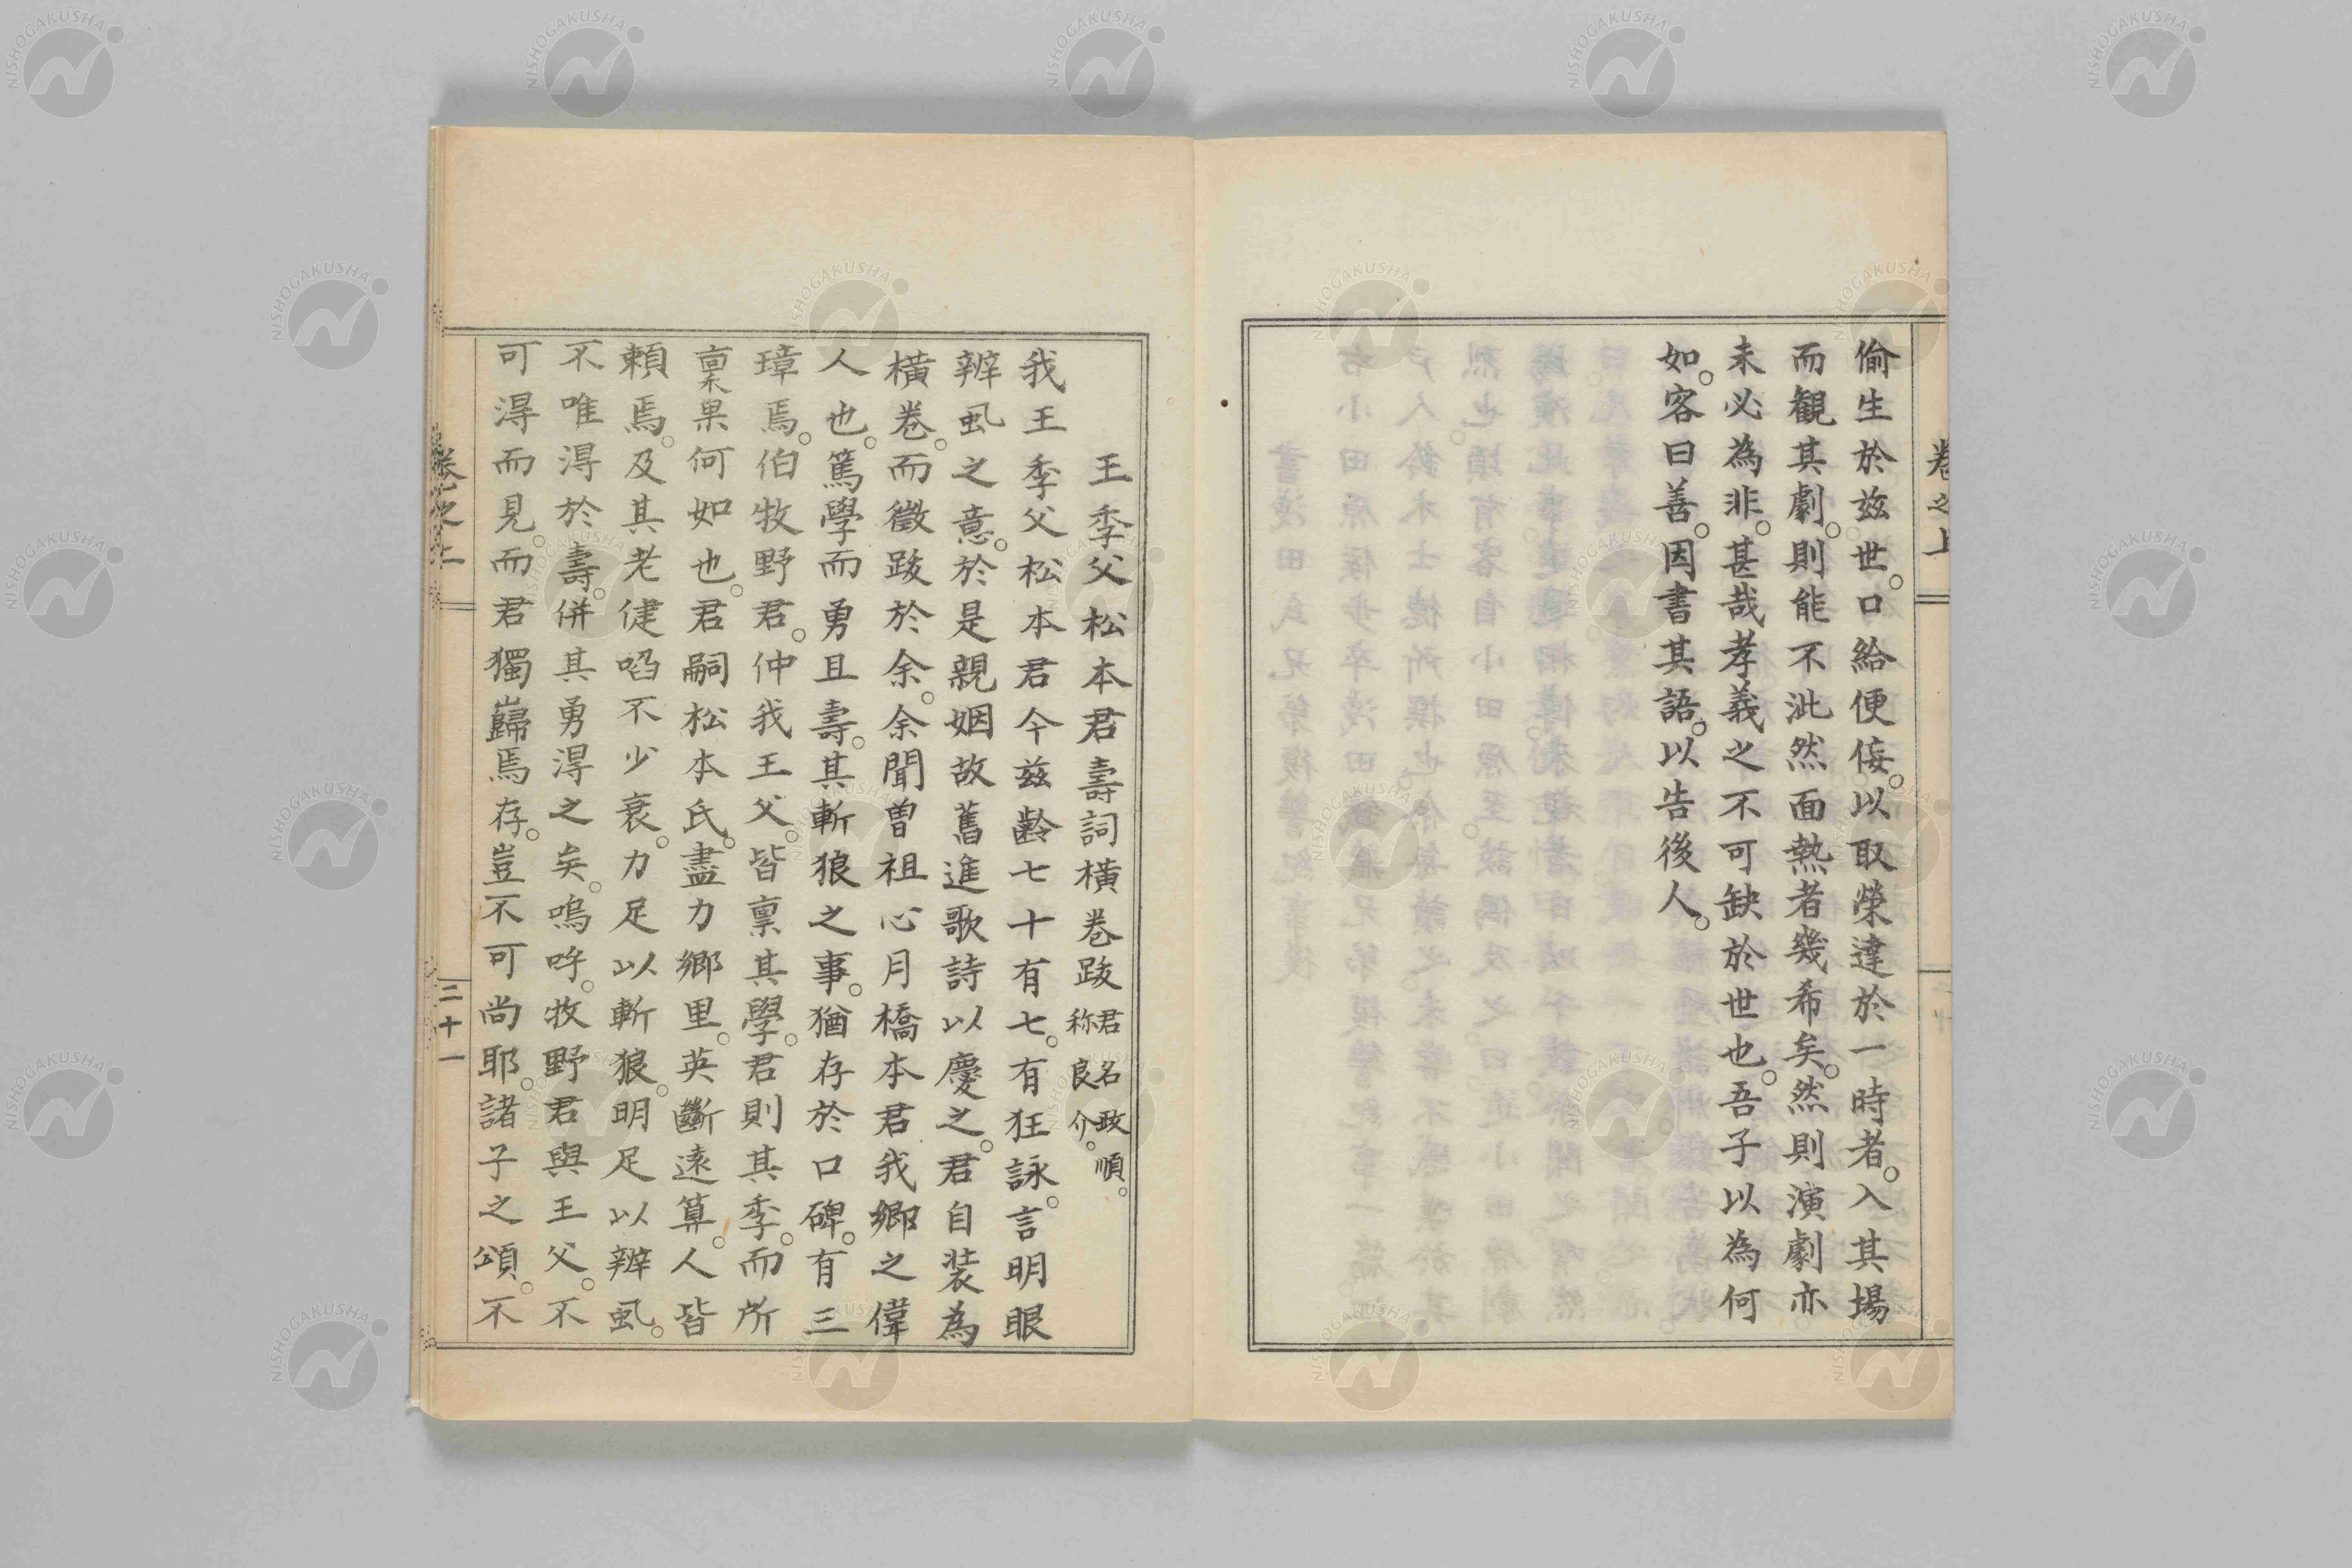 卷之上
偷生於茲世。口給便佞。以取榮達於一時者。入其場
而観其劇。則能不泚然面熱者幾希矣。然則演劇亦
未必為非。甚哉孝義之不可缺於世也。吾子以為何
如。客曰善。因書其語。以告後人。
王季父松本君壽詞橫卷跋 君名政順。称良介。
我王季父松本君今茲齡七十有七。有狂詠。言明眼
辨虱之意。於是親姻故舊進歌詩以慶之。君自裝為
橫卷。而徵跋於余。余聞曽祖心月橋本君我鄉之偉
人也。篤學而勇且壽。其斬狼之事。猶存於口碑。有三
璋焉。伯牧野君。仲我王父。皆稟其學。君則其季。而所
稟果何如也。君嗣松本氏。盡力鄉里。英斷遠算。人皆
頼焉。及其老健啗不少衰。力足以斬狼。明足以辨虱。
不唯淂於壽。併其勇淂之矣。嗚呼。牧野君與王父。不
可淂而見。而君獨巋焉存。豈不可尚耶。諸子之頌。不
卷之上
二十一
NISHOGAKUSHA